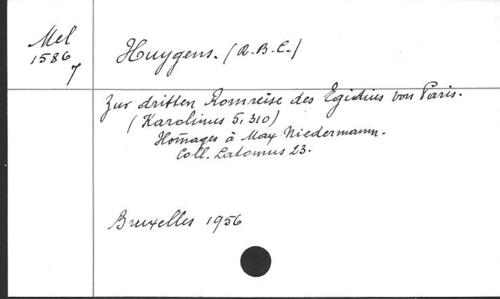 Mel
1586
7
Huygens. (R.B.C.)
Zur dritten Romreise des Egidius von Paris.
(Karolinus 5, 310)
Homages à Max Niedermann.
Coll. Latomus 23.
Bruxelles 1956